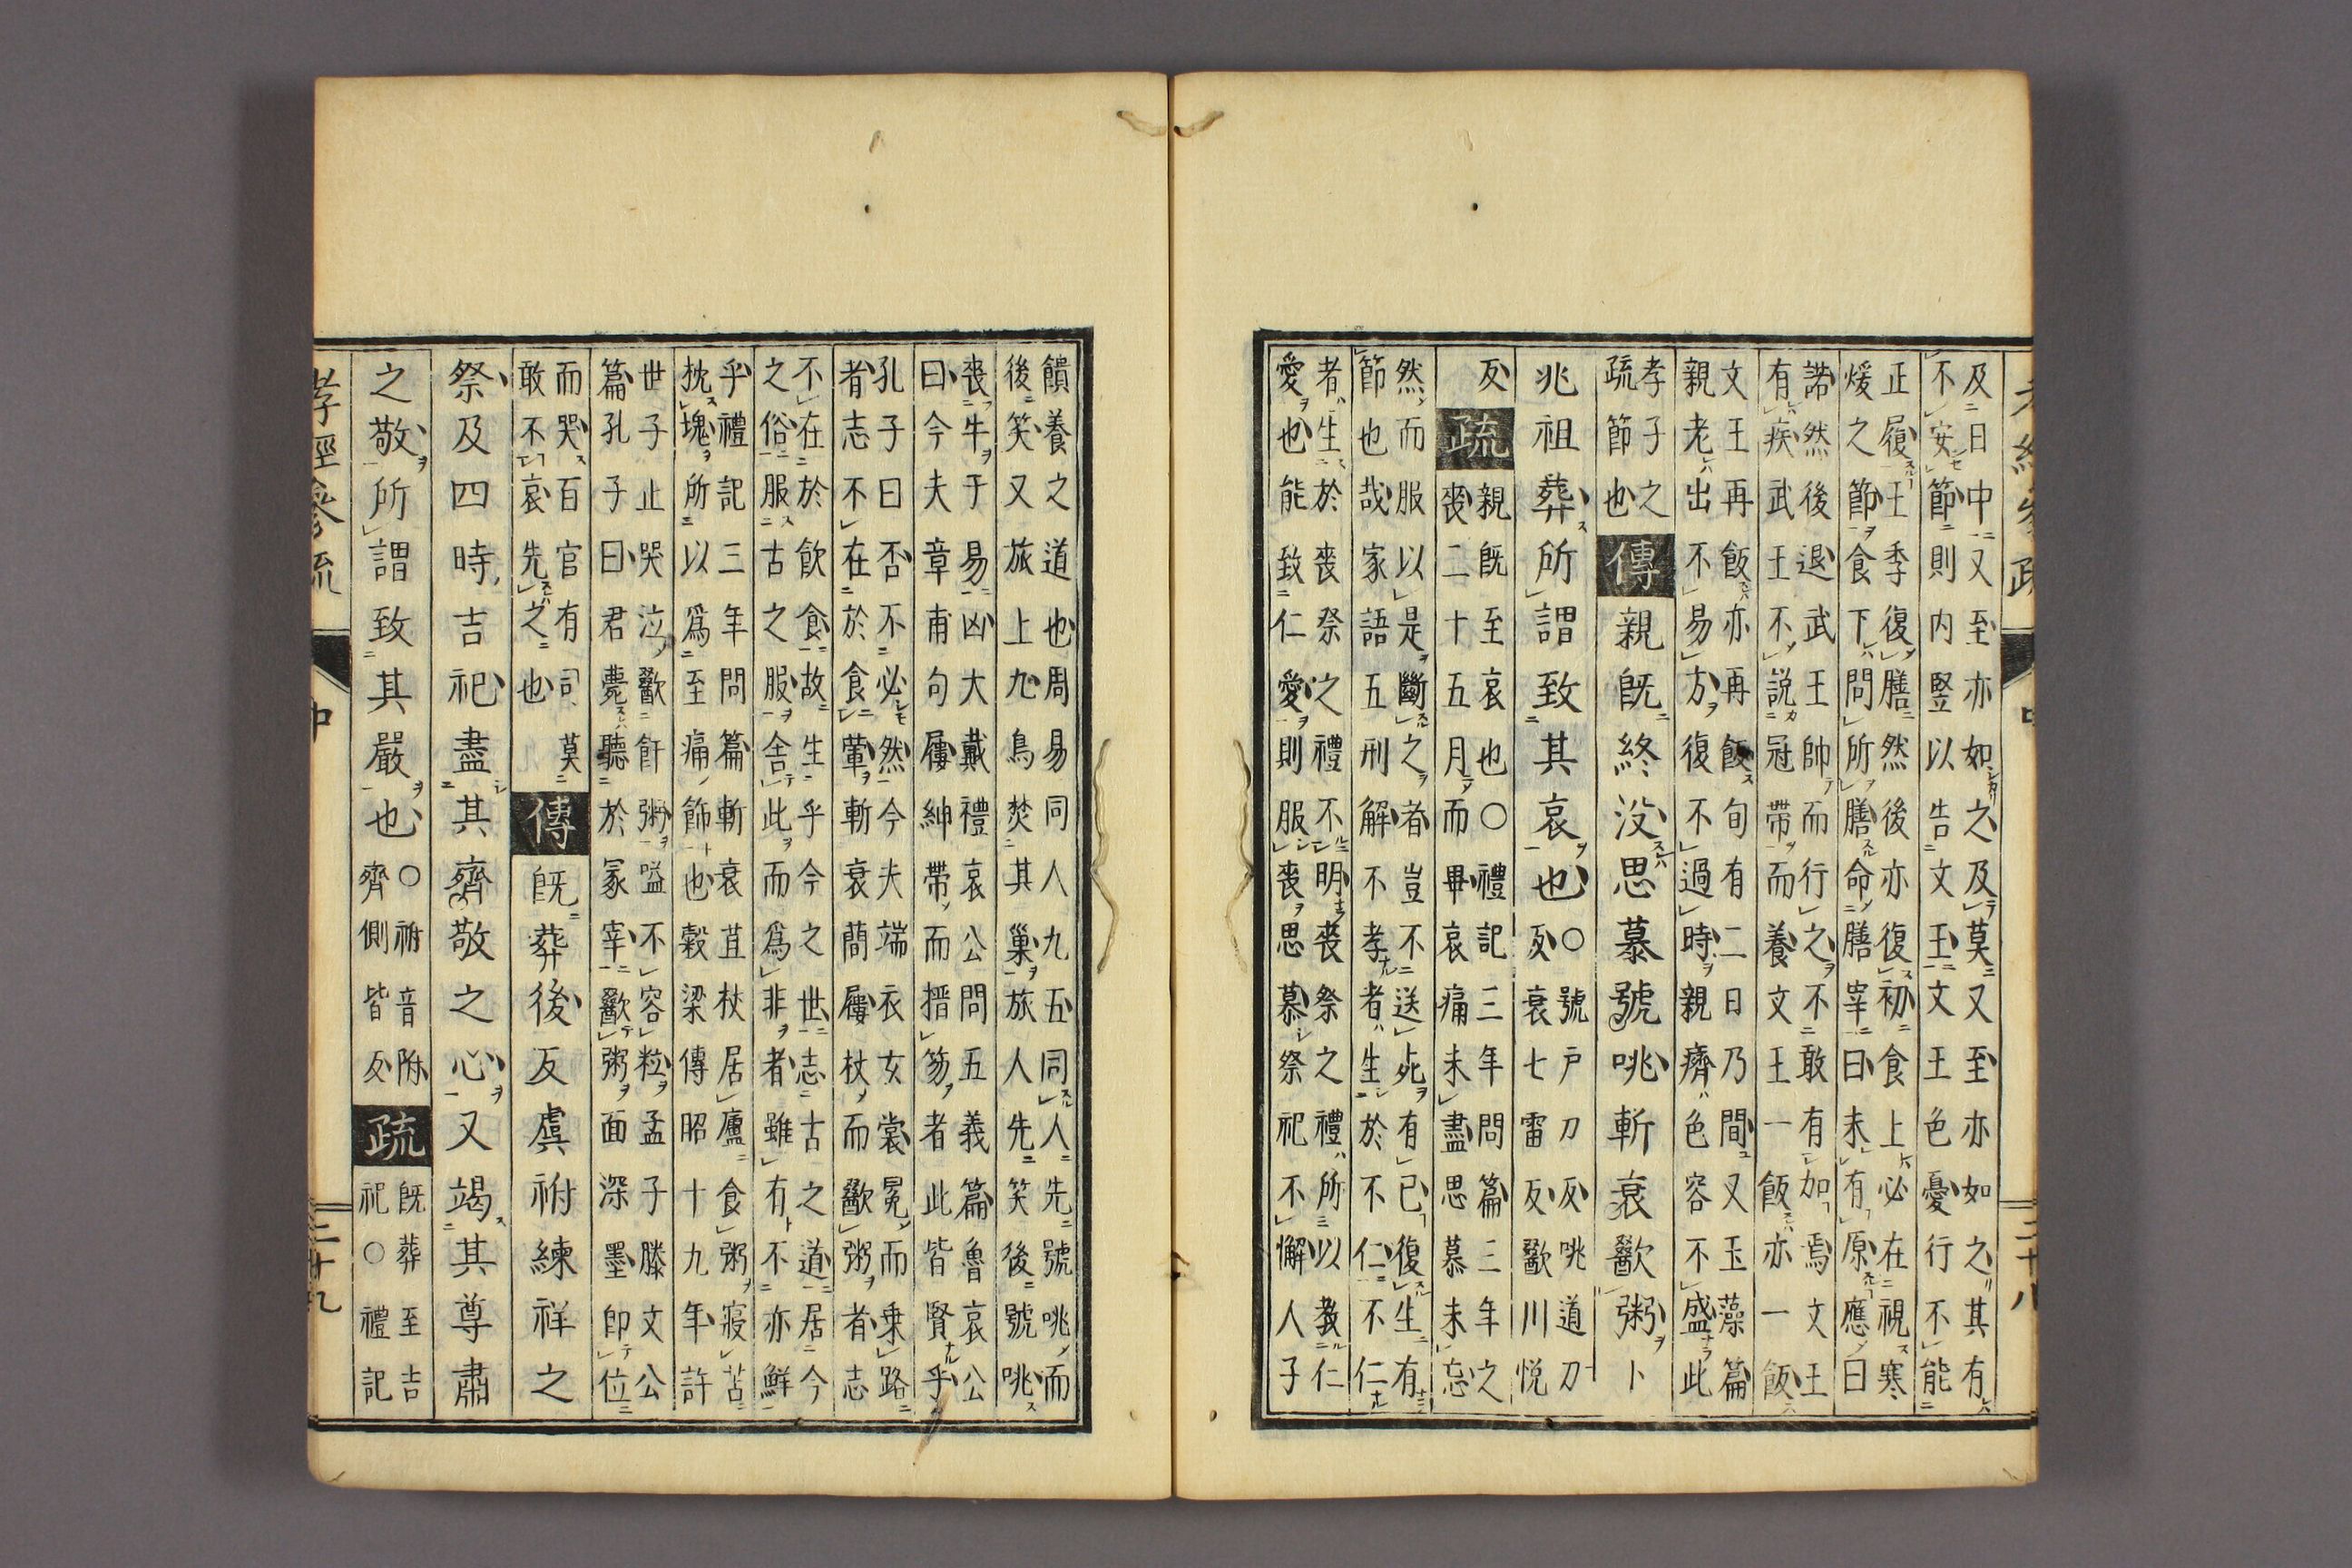 及日中又至亦如之及莫又至亦如之其有
不安節則内豎以告文王文王色憂行不能
正履王季復膳然後亦復初食上必在視寒
煖之節食下問所膳命膳宰曰末有原應曰
諾然後退武王帥而行之不敢有加焉文王
有疾武王不說冠帶而養文王一飯亦一飯
文王再飯亦再飯旬有二日乃間又玉藻篇
親老出不易方復不過時親癠色容不盛此
孝子之
疏節也傳親既終没思慕號咷斬衰歠粥卜
兆祖葬所謂致其哀也○號戸刀反咷道刀
反衰七雷反歠川悦
反疏親既至哀也○禮記三年問篇三年之
喪二十五月而畢哀痛未盡思慕未忘
然而服以是斷之者豈不送死有已復生有
節也哉家語五刑解不孝者生於不仁不仁
者生於喪祭之禮不明喪祭之禮所以教仁
愛也能致仁愛則服喪思慕祭祀不懈人子
饋養之道也周易同人九五同人先號咷而
後笑又旅上九鳥焚其巢旅人先笑後號咷
喪牛于易凶大戴禮哀公問五義篇魯哀公
曰今夫章甫句屨紳帶而搢笏者此皆賢乎
孔子曰否不必然今夫端衣玄裳冕而乗路
者志不在於食葷斬衰蕳屨杖而歠粥者志
不在於飲食故生乎今之世志古之道居今
之俗服古之服舍此而爲非者雖有不亦鮮
乎禮記三年問篇斬衰苴杖居廬食粥寢苫
枕塊所以爲至痛飾也穀梁傳昭十九年許
世子止哭泣歠飦粥嗌不容粒孟子滕文公
篇孔子曰君薨聽於冢宰歠粥面深墨即位
而哭百官有司莫
敢不哀先之也傳既葬後反虞祔練祥之
祭及四時吉祀盡其齊敬之心又竭其尊肅
之敬所謂致其嚴也○祔音附
齊側皆反疏既葬至吉
祀○禮記
孝經參疏 中 二十九